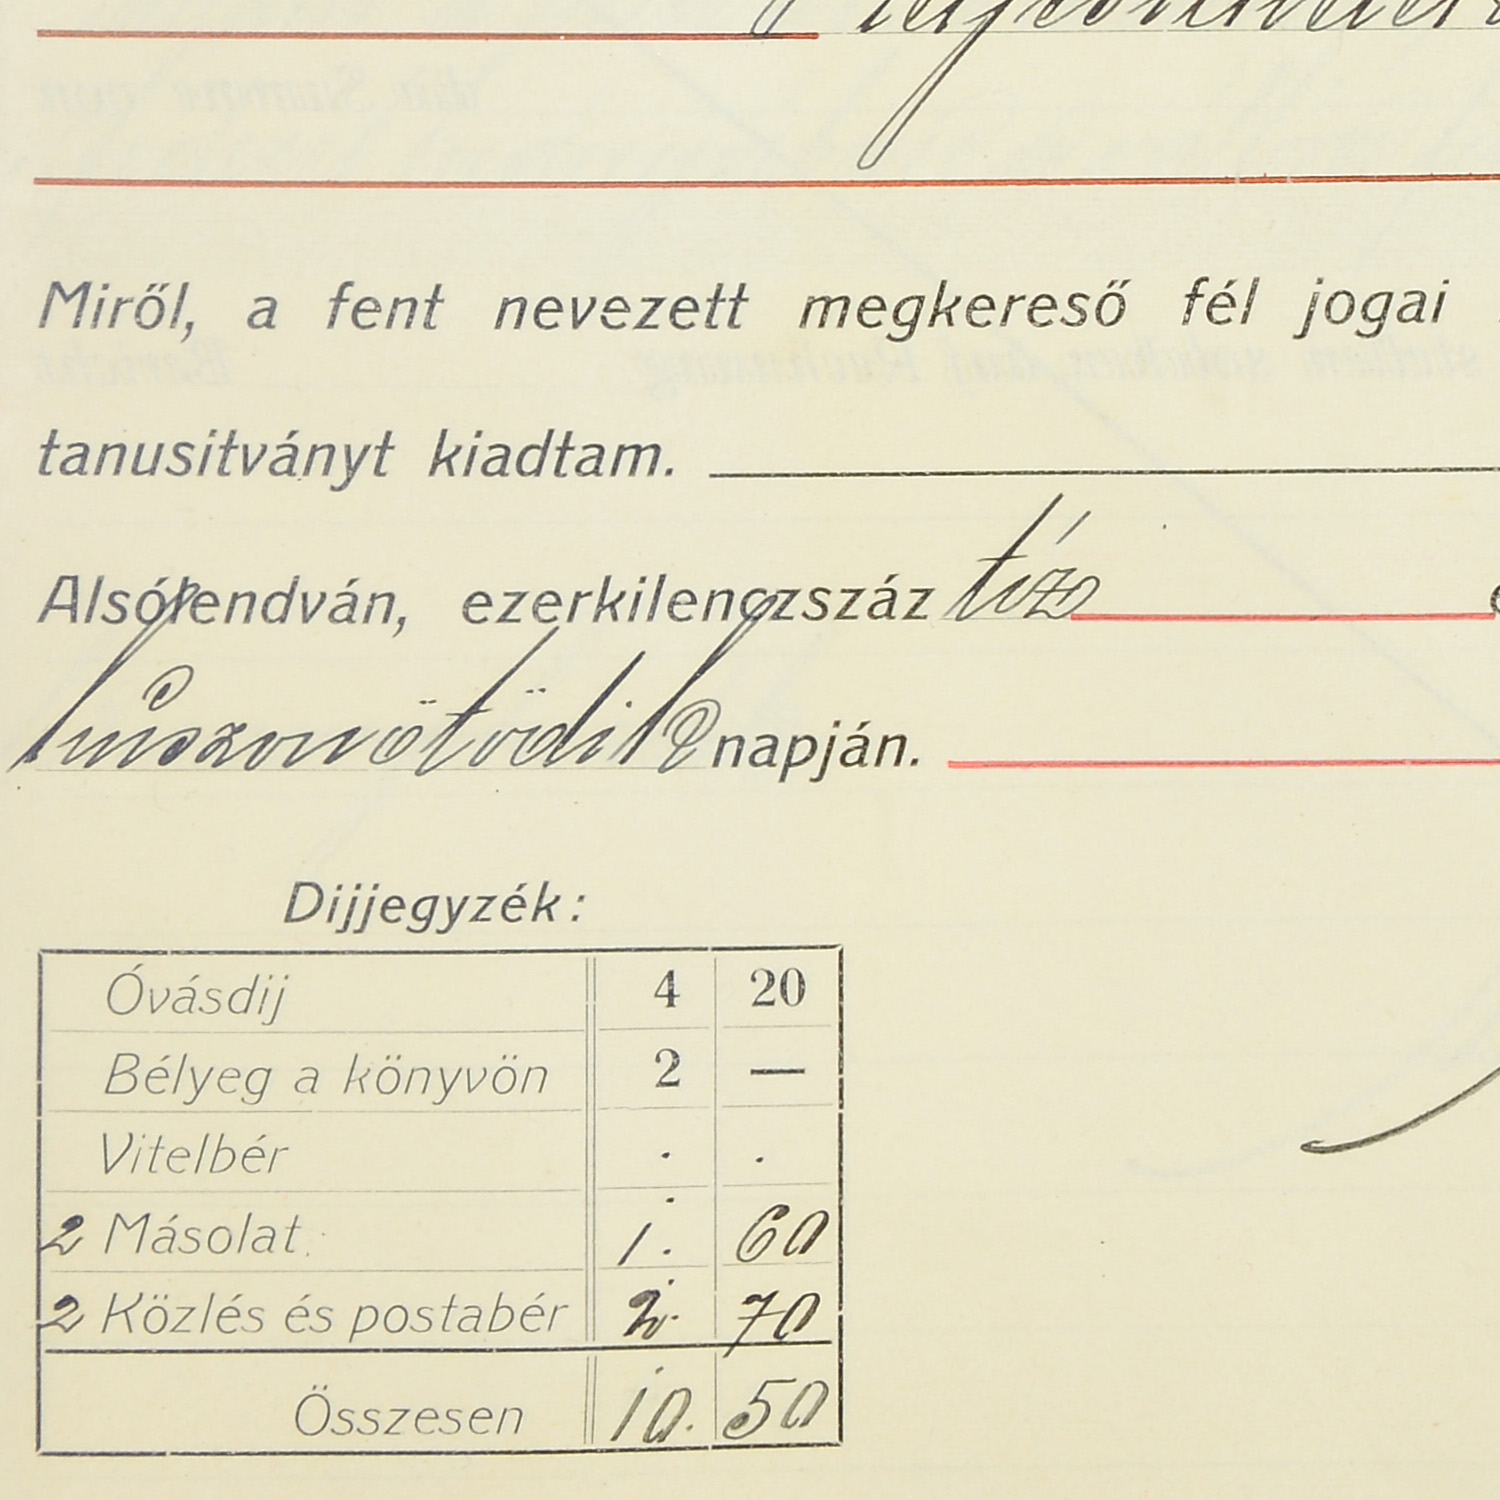 Miről, a fent nevezett megkereső fél jogai
tanusitványt kiadtam.
Alsólendván, ezerkilenczszáz tíz
huszonötödik napján.
Dijjegyzék:
Óvásdij 4 20
Bélyeg a könyvön 2 —
Vitelbér . .
2 Másolat 1. 60
2 Közlés és postabér 2. 70
Összesen 10. 50